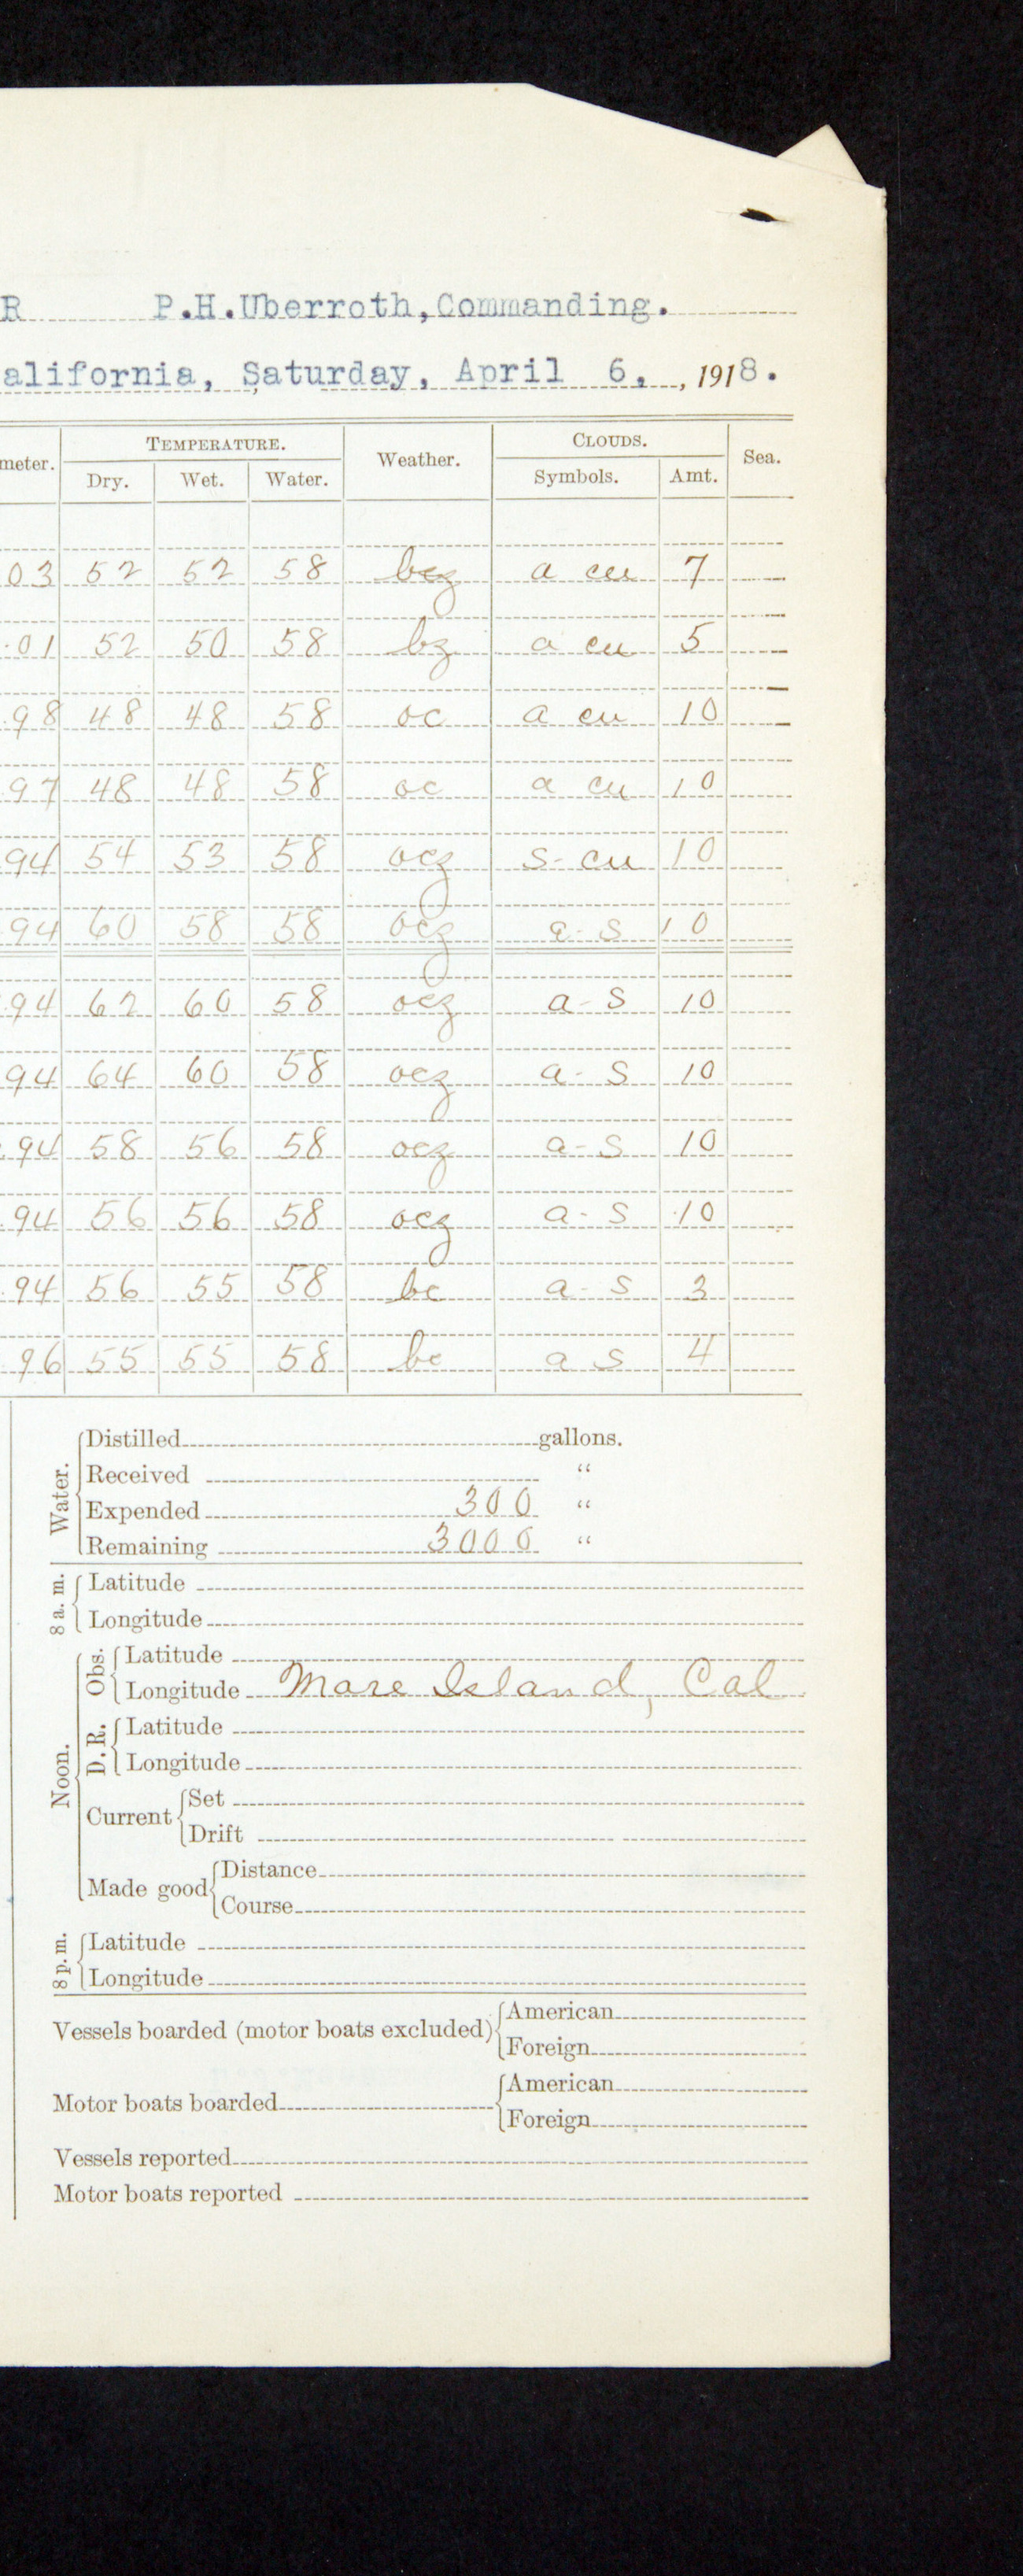 R P.H.Uberroth, Commanding.
alifornia, Saturday, April 6, , 1918.
meter. TEMPERATURE. Weather. CLOUDS. Sea.
Dry. Wet. Water. Symbols. Amt.
03 52 52 58 bcz a cu 7
.01 52 50 58 bz a cu 5
.98 48 48 58 oc a cu 10
.97 48 48 58 oc a cu 10
94 54 53 58 ocz s-cu 10
94 60 58 58 ocz a-s 10
.94 62 60 58 ocz a-s 10
94 64 60 58 ocz a-s 10
.94 58 56 58 ocz a-s 10
.94 56 56 58 ocz a-s 10
.94 56 55 58 bc a-s 3
96 55 55 58 bc a s 4
Water.
Distilled gallons.
Received “
Expended 300 “
Remaining 3000 “
8 a. m.
Latitude
Longitude
Noon.
Obs.
Latitude
Longitude Mare Island, Cal
D. R.
Latitude
Longitude
Current
Set
Drift
Made good
Distance
Course
8 p. m.
Latitude
Longitude
Vessels boarded (motor boats excluded)
American
Foreign
Motor boats boarded
American
Foreign
Vessels reported
Motor boats reported